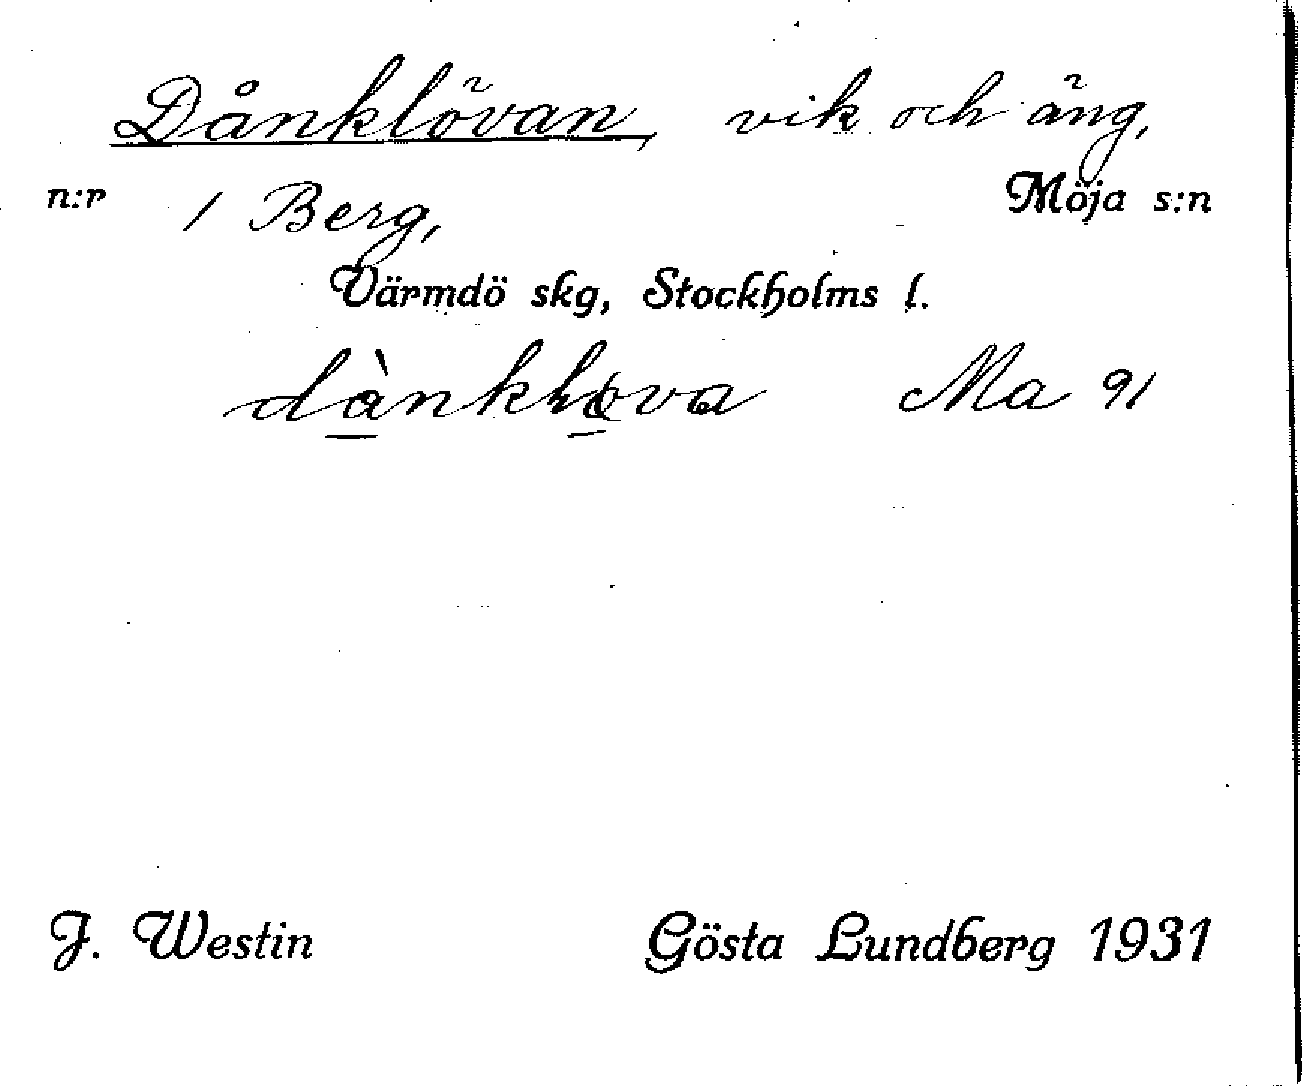 Dånklövan, vik och äng,
n:r 1 Berg, Möja s:n
Värmdö skg, Stockholms l.
dànkløva Ma 91
J. Westin Gösta Lundberg 1931